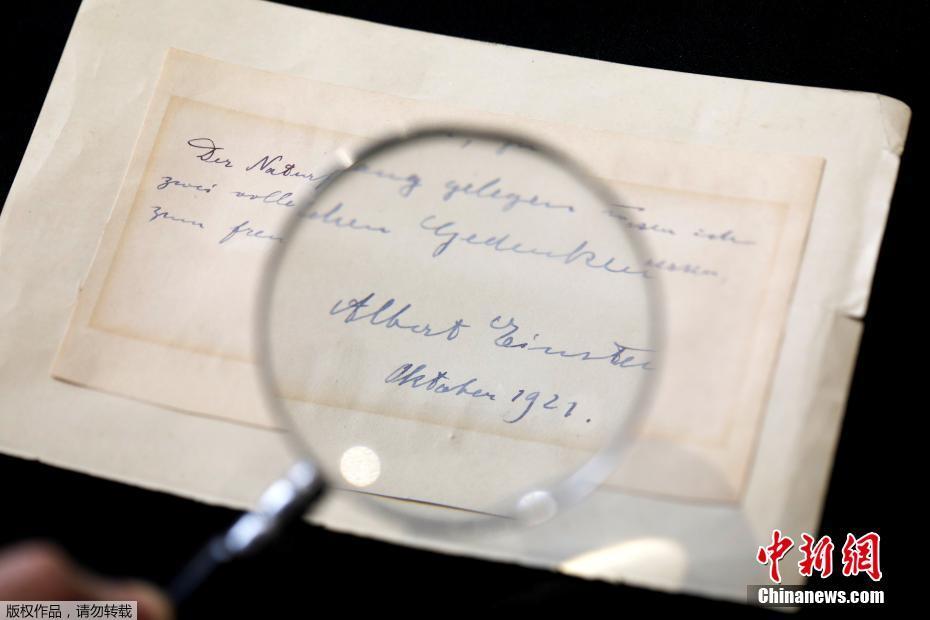 Der Natur gelegen ich
zwei volle
zum Gedenken
Albert Einstein
Oktober 1921.
中新网
Chinanews.com
版权作品，请勿转载